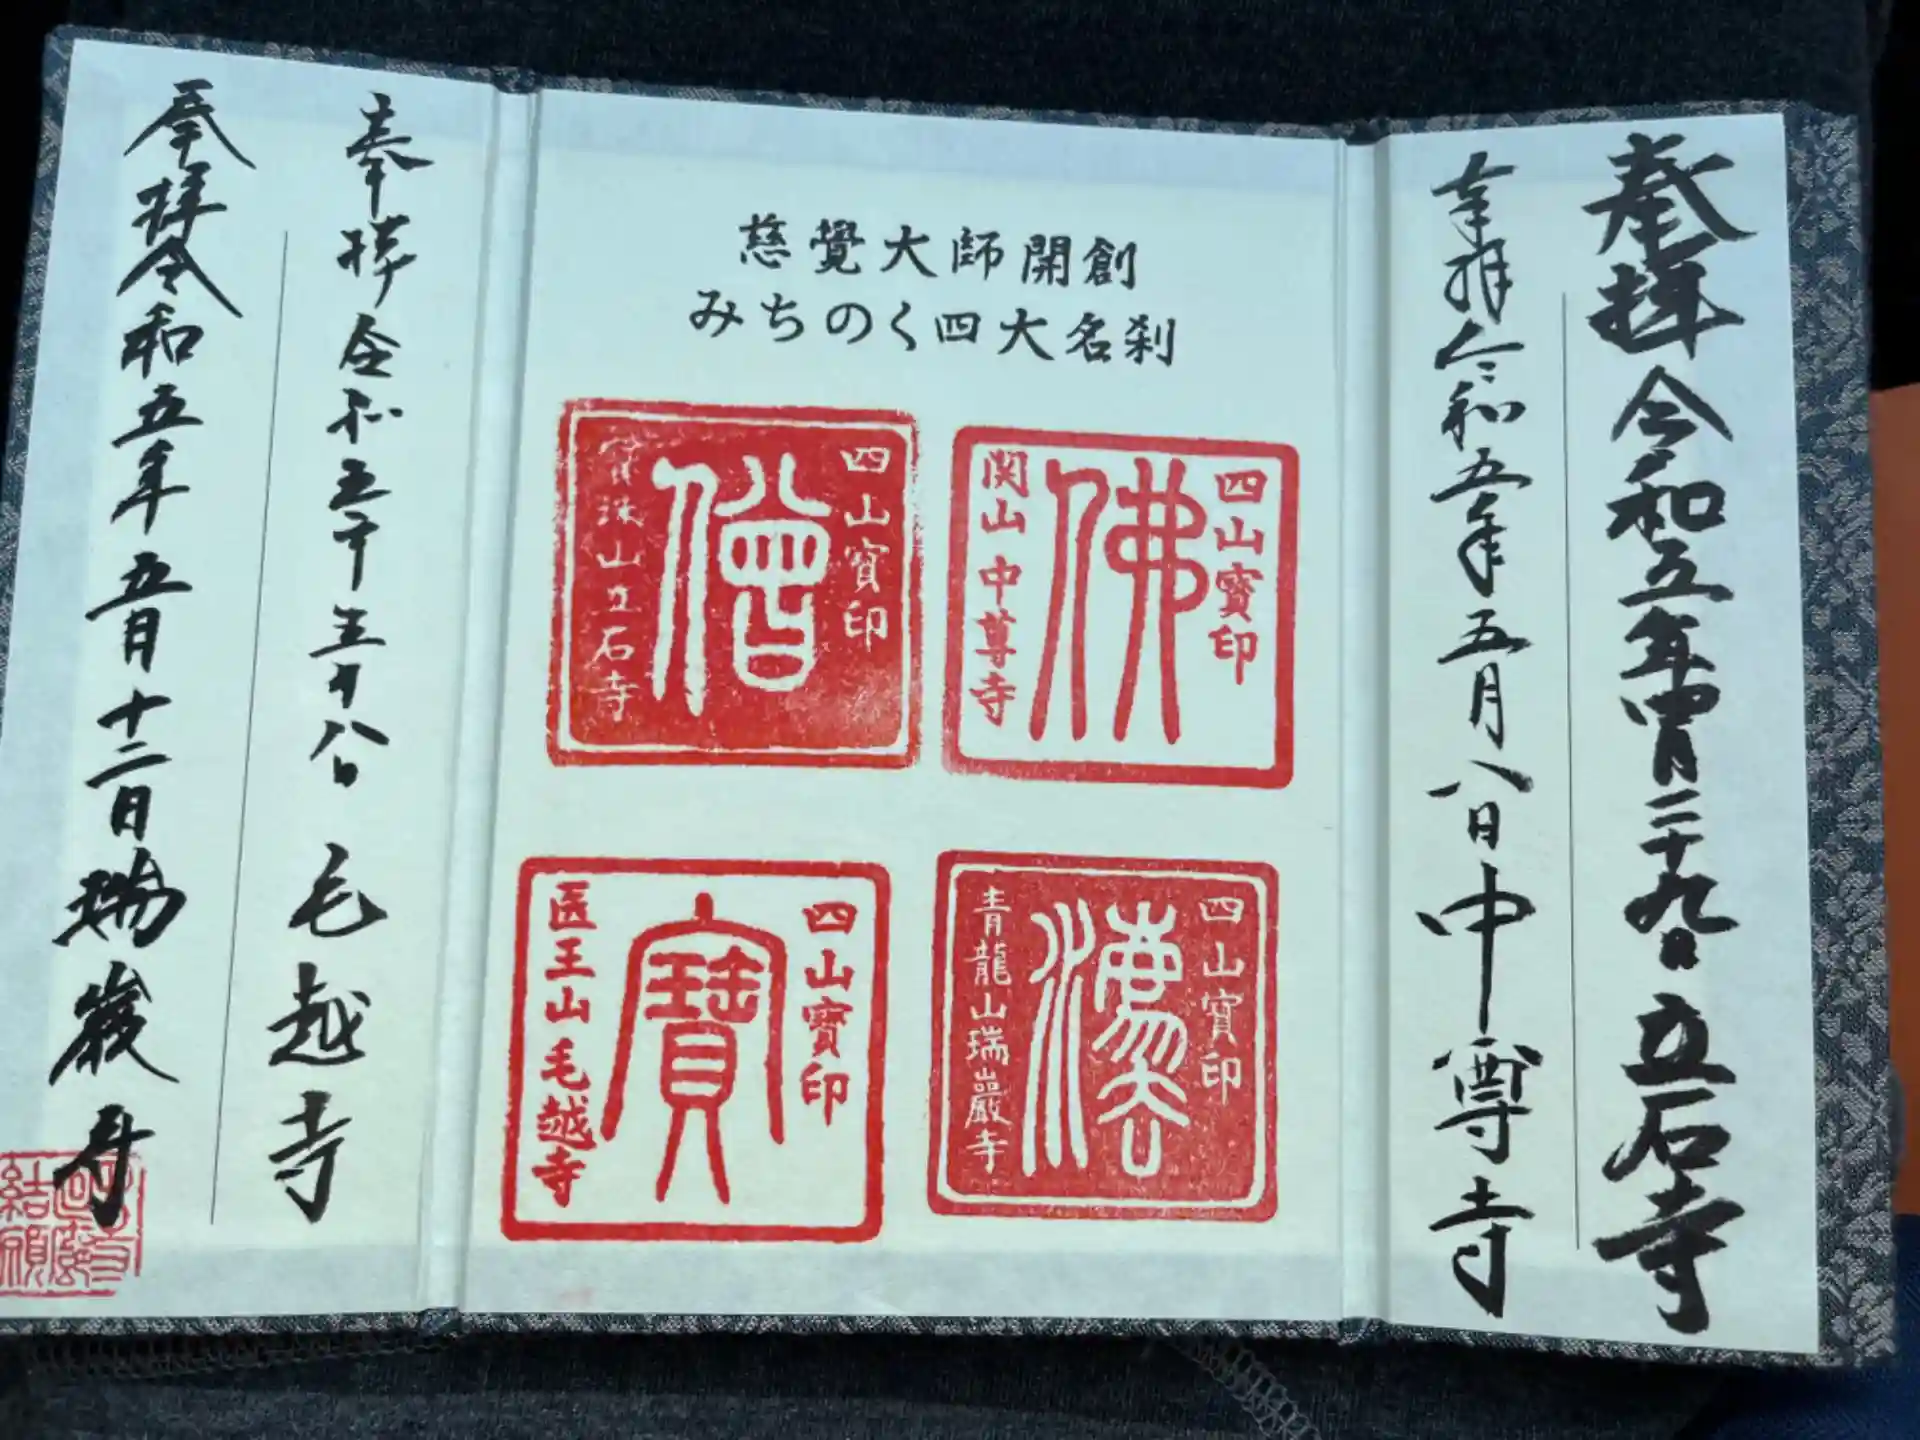 奉拝 令和五年四月二十九日 立石寺
奉拝 令和五年五月八日 中尊寺
慈覺大師開創
みちのく四大名刹
四山寶印
佛
関山中尊寺
四山寶印
僧
寶珠山立石寺
四山寶印
法
青龍山瑞巖寺
四山寶印
寶
医王山毛越寺
奉拝 令和五年五月八日 毛越寺
奉拝 令和五年五月十二日 瑞巌寺
結願